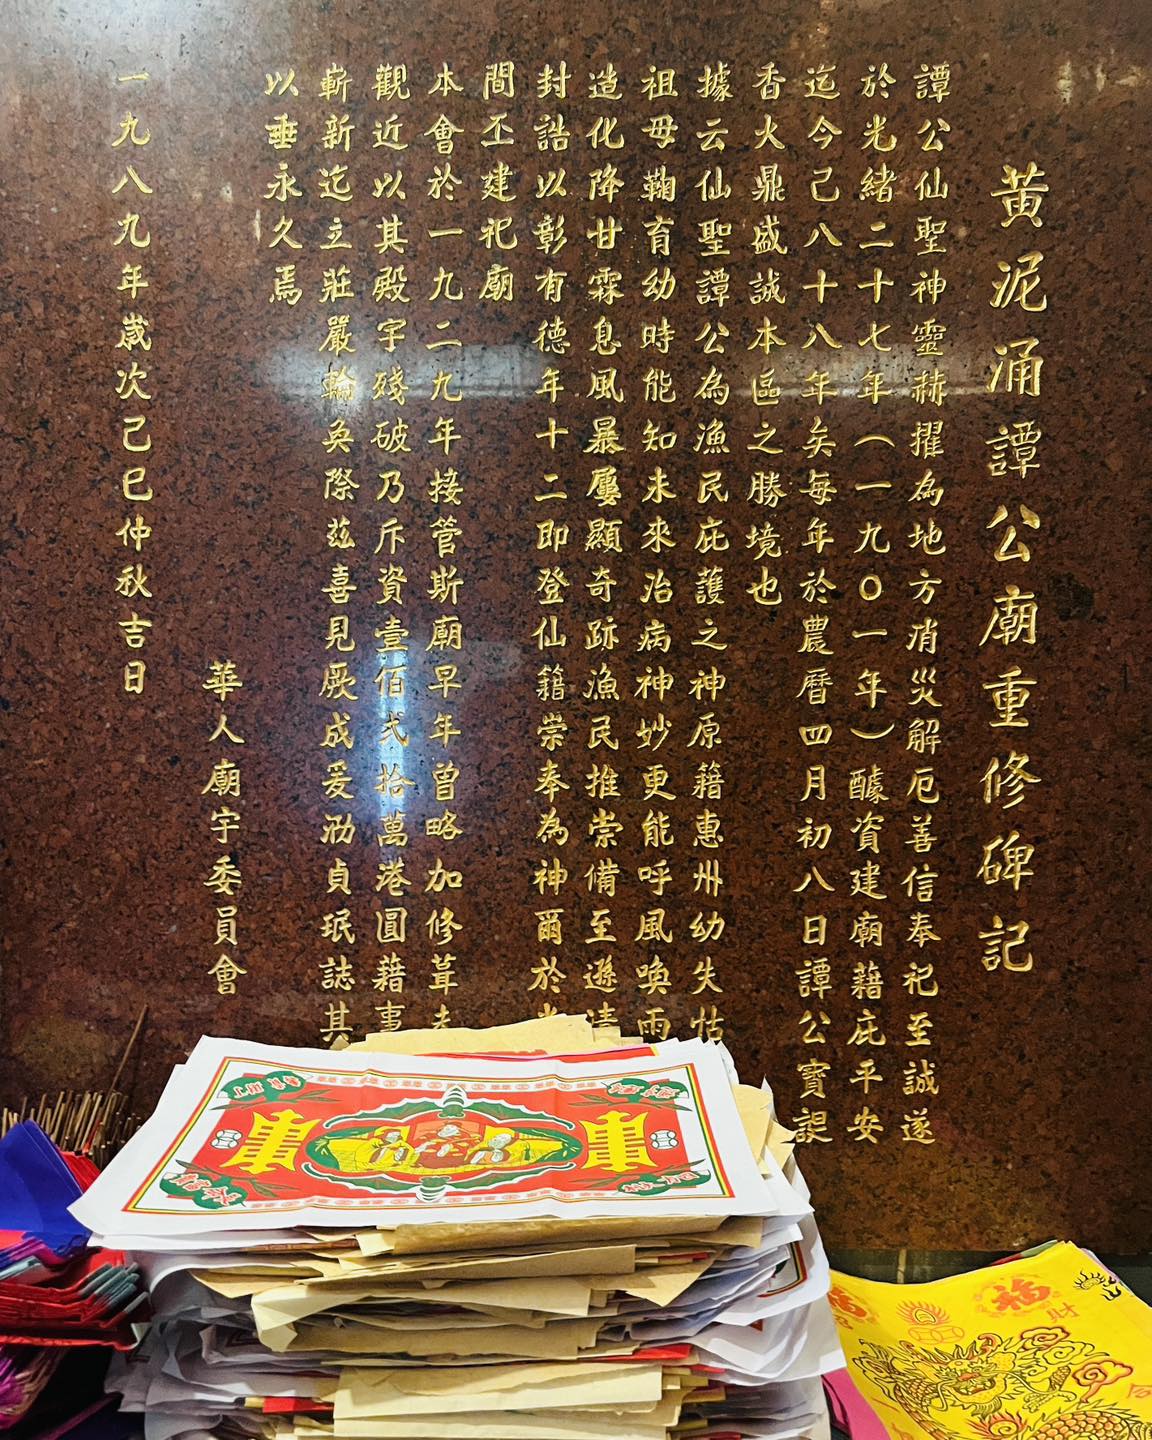 黃泥涌譚公廟重修碑記
譚公仙聖神靈赫擢為地方消災解厄善信奉祀至誠遂
於光緒二十七年（一九〇一年）醵資建廟藉庇平安
迄今己八十八年矣每年於農曆四月初八日譚公寶誕
香火鼎盛誠本區之勝境也
據云仙聖譚公為漁民庇護之神原籍惠州幼失怙
祖母鞠育幼時能知未來治病神妙更能呼風喚雨
造化降甘霖息風暴屢顯奇跡漁民推崇備至遜清
封誥以彰有德年十二即登仙籍崇奉為神爾於
間丕建祀廟
本會於一九二九年接管斯廟早年曾略加修葺
觀近以其殿宇殘破乃斥資壹佰弍拾萬港圓藉事
嶄新迄立莊嚴輪奐際茲喜見厥成爰泐貞珉誌其
以垂永久焉
華人廟宇委員會
一九八九年歲次己巳仲秋吉日
福
財
福